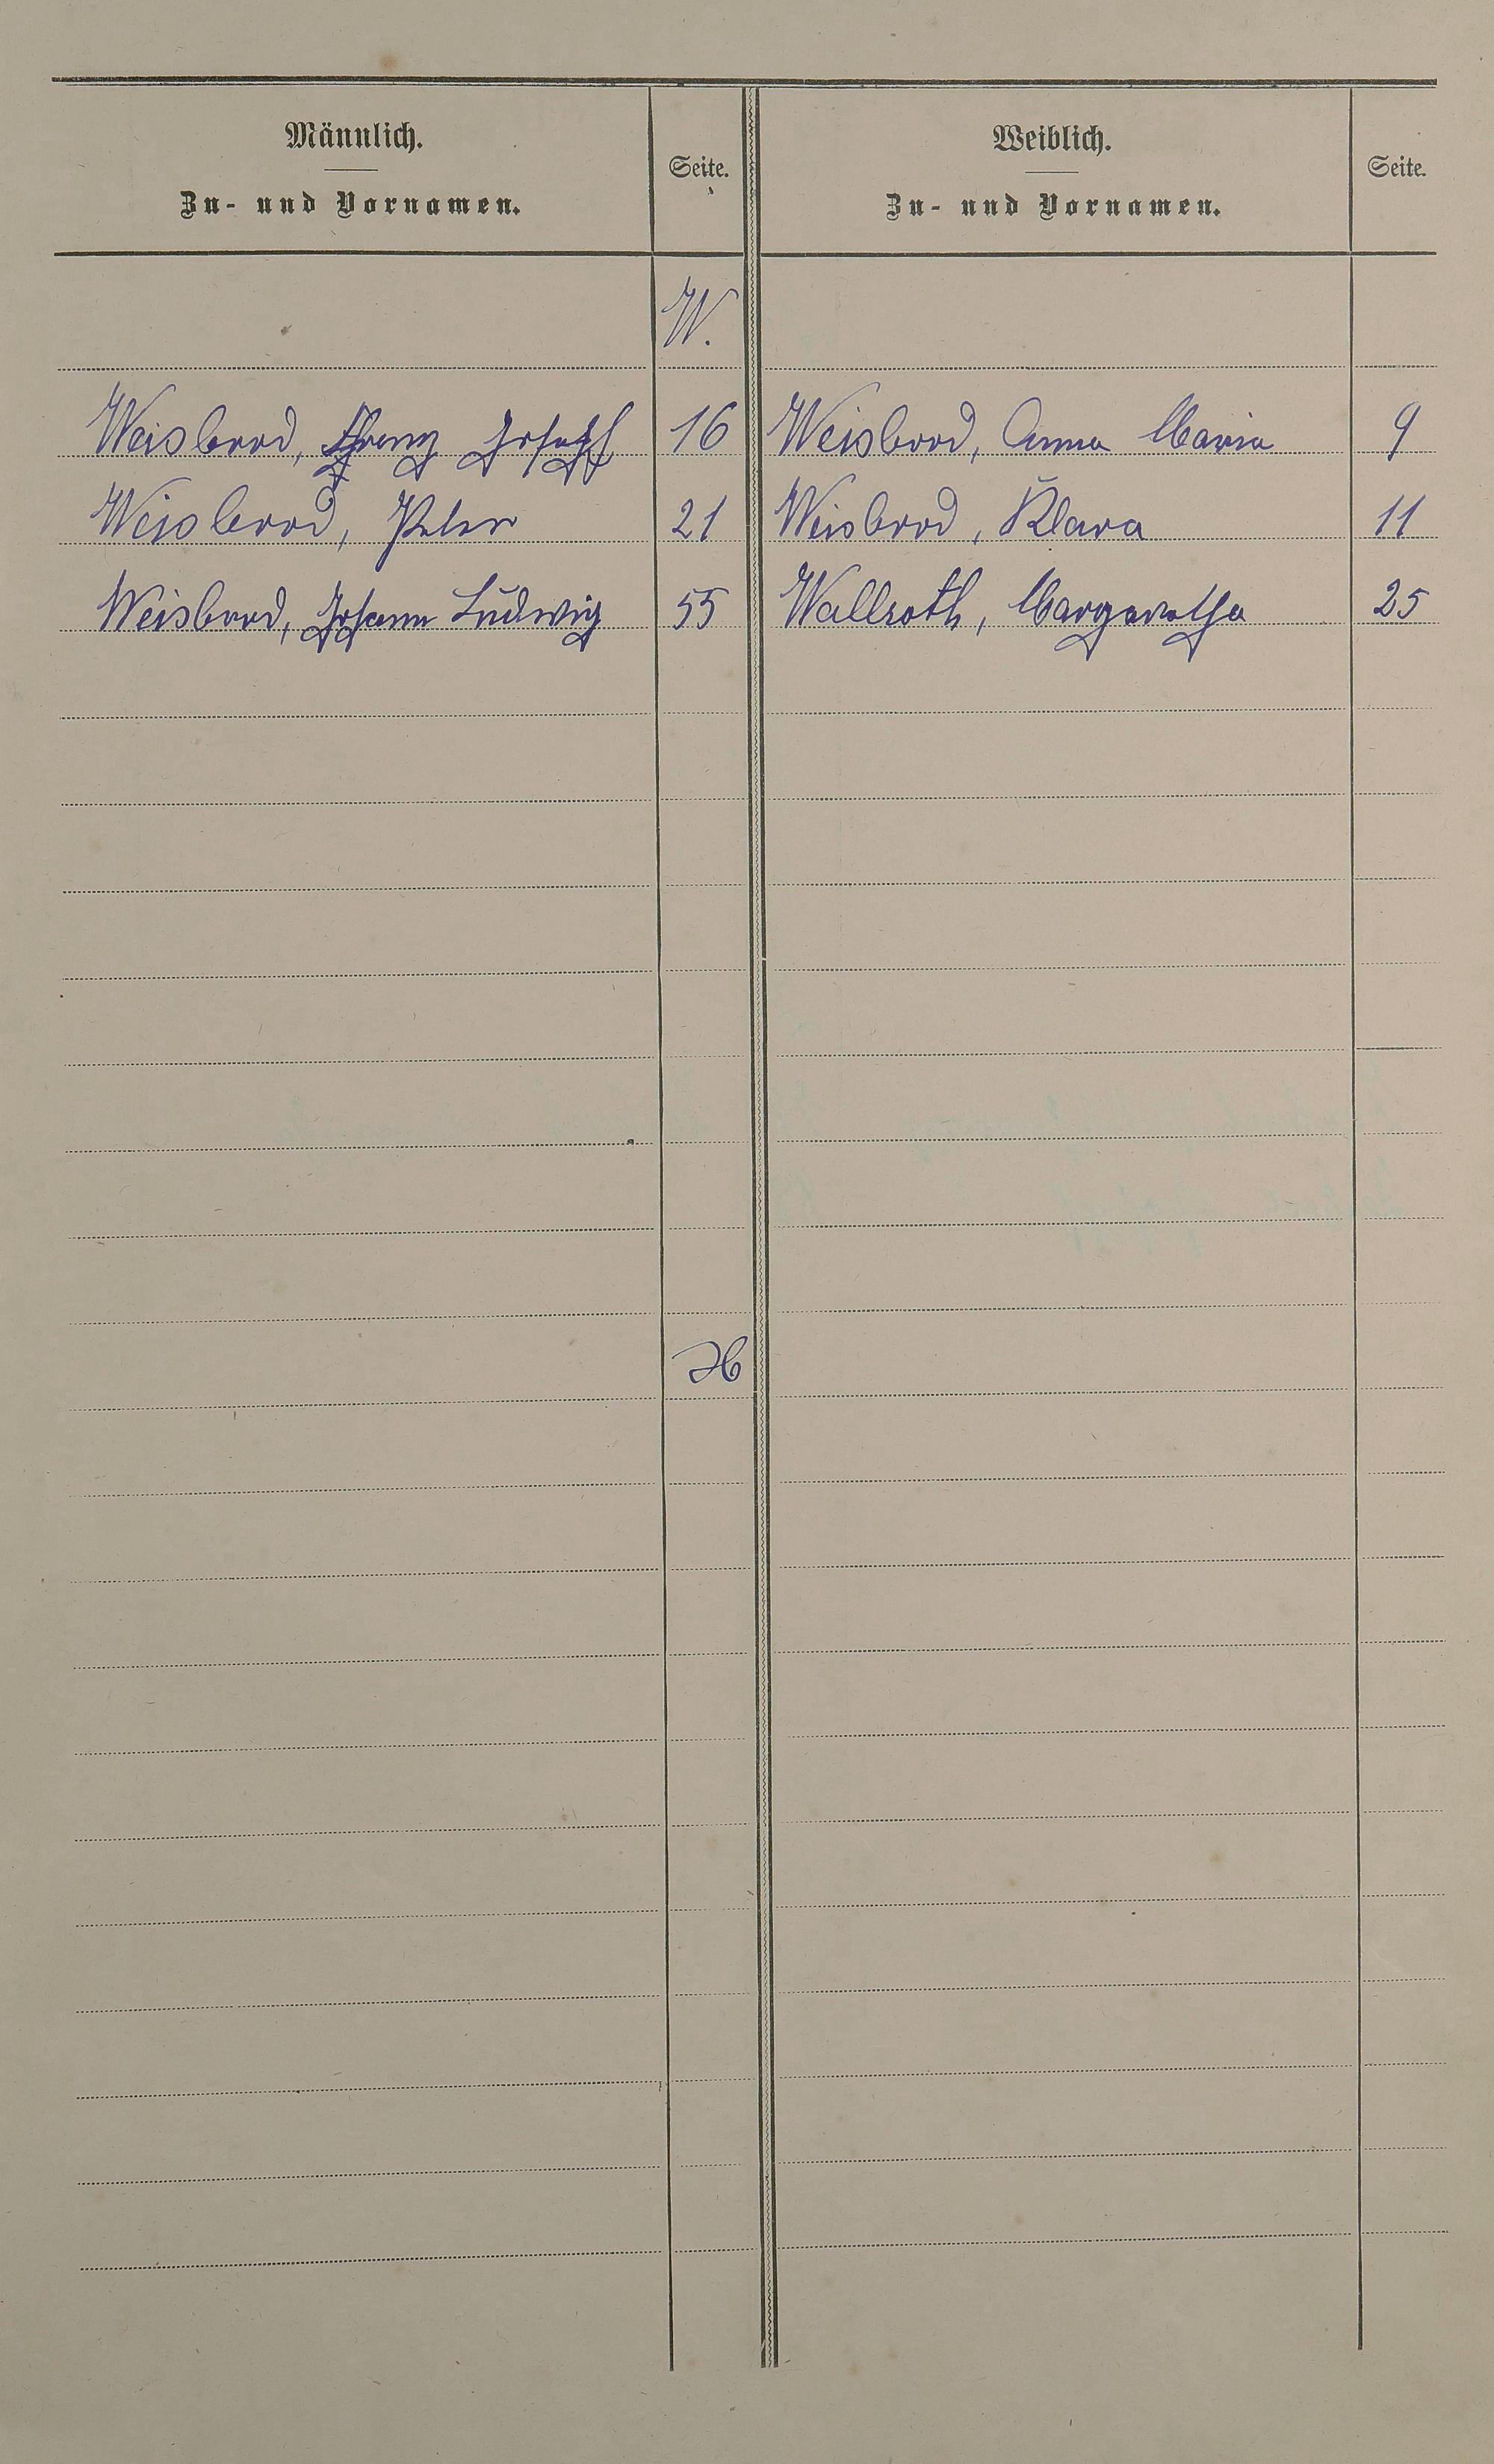 Männlich.
Zu- und Vornamen.
Seite.
Weiblich.
Zu- und Vornamen.
Seite.
W.
Weisbrod, Franz Joseph 16 Weisbrod, Anna Maria 9
Weisbrod, Peter 21 Weisbrod, Klara 11
Weisbrod, Johann Ludwig 55 Wallroth, Margaretha 25